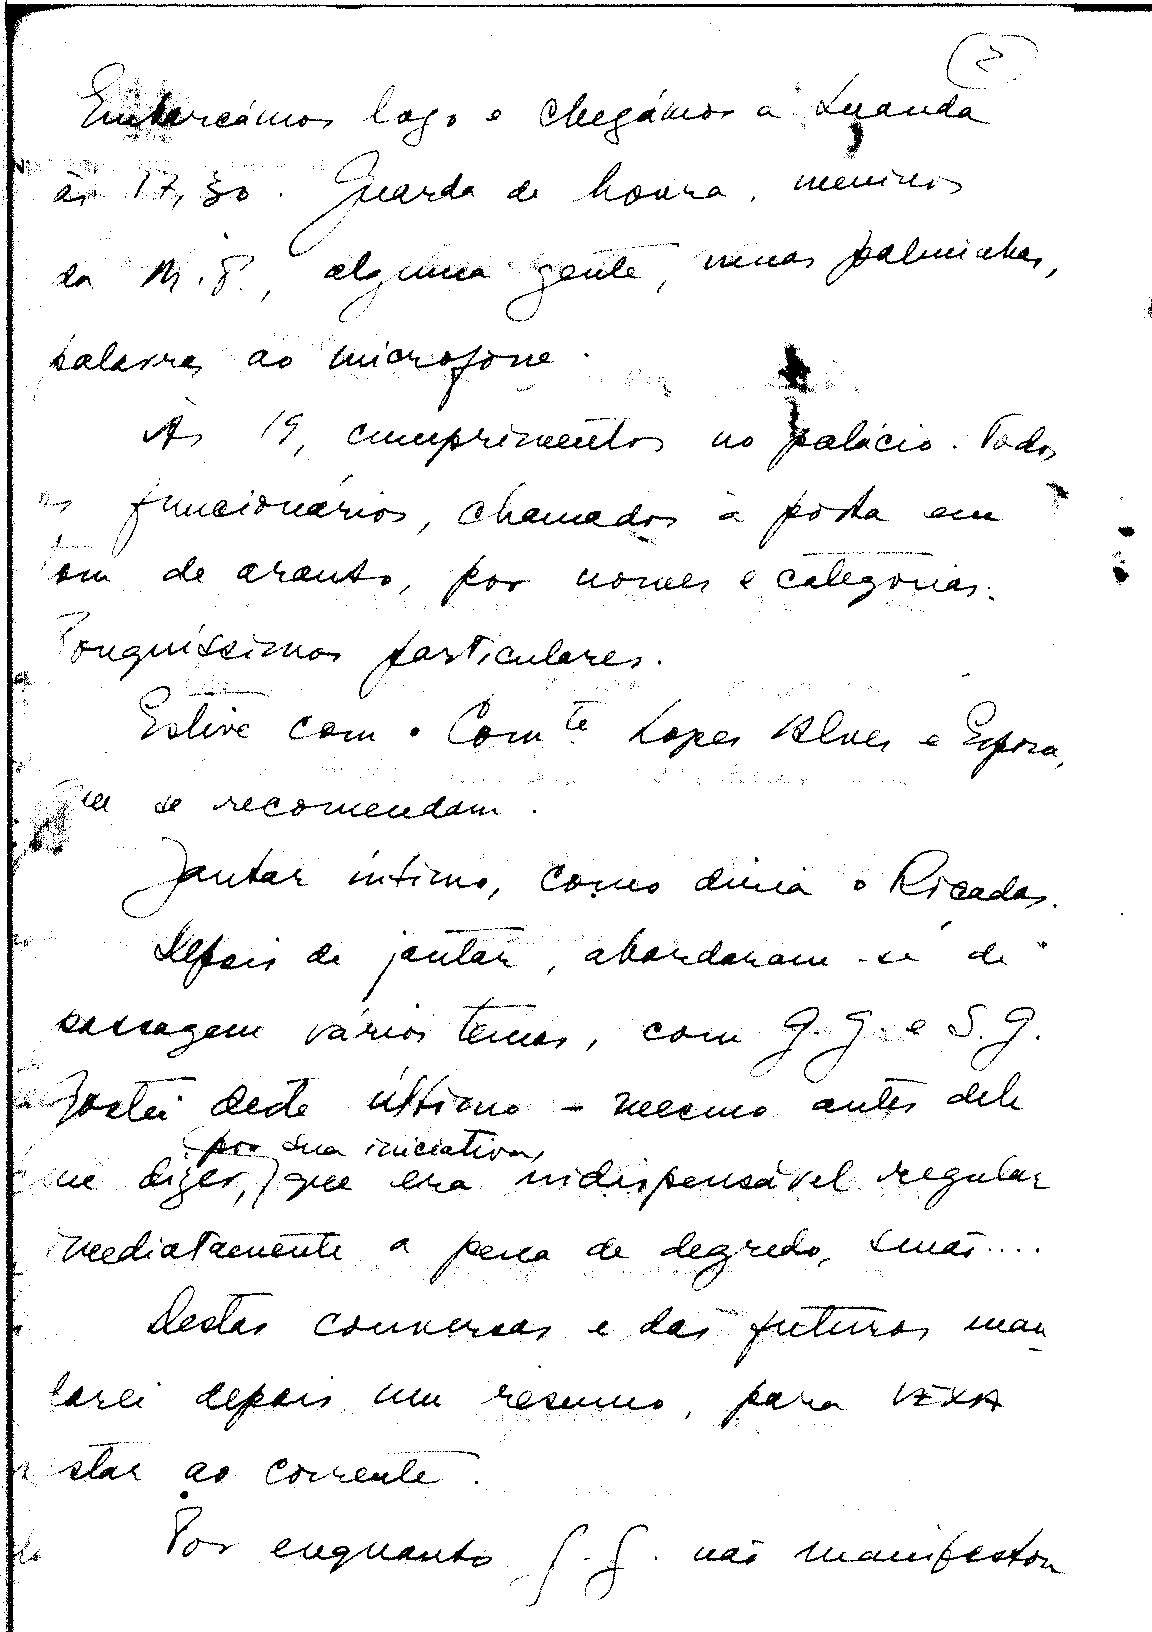 2
Embarcámos logo e chegámos a Luanda
às 17,30. Guarda de honra, meninos
da M.P., alguma gente, umas palminhas,
palavras ao microfone.
Às 19, cumprimentos no palácio. Todos
os funcionários, chamados à porta em
tom de arauto, por nomes e categorias.
Pouquíssimos particulares.
Estive com o Comte Lopes Alves e Esposa,
que se recomendam.
Jantar íntimo, como diria o
Depois de jantar, abordaram-se de
passagem vários temas, com G.G. e S.G.
Gostei deste último - mesmo antes dele
por sua iniciativa,
me dizer, que era indispensável regular
imediatamente a pena de degredo, senão....
Destas conversas e das futuras man
darei depois um resumo, para VEXA
estar ao corrente.
Por enquanto G.G. não manifestou